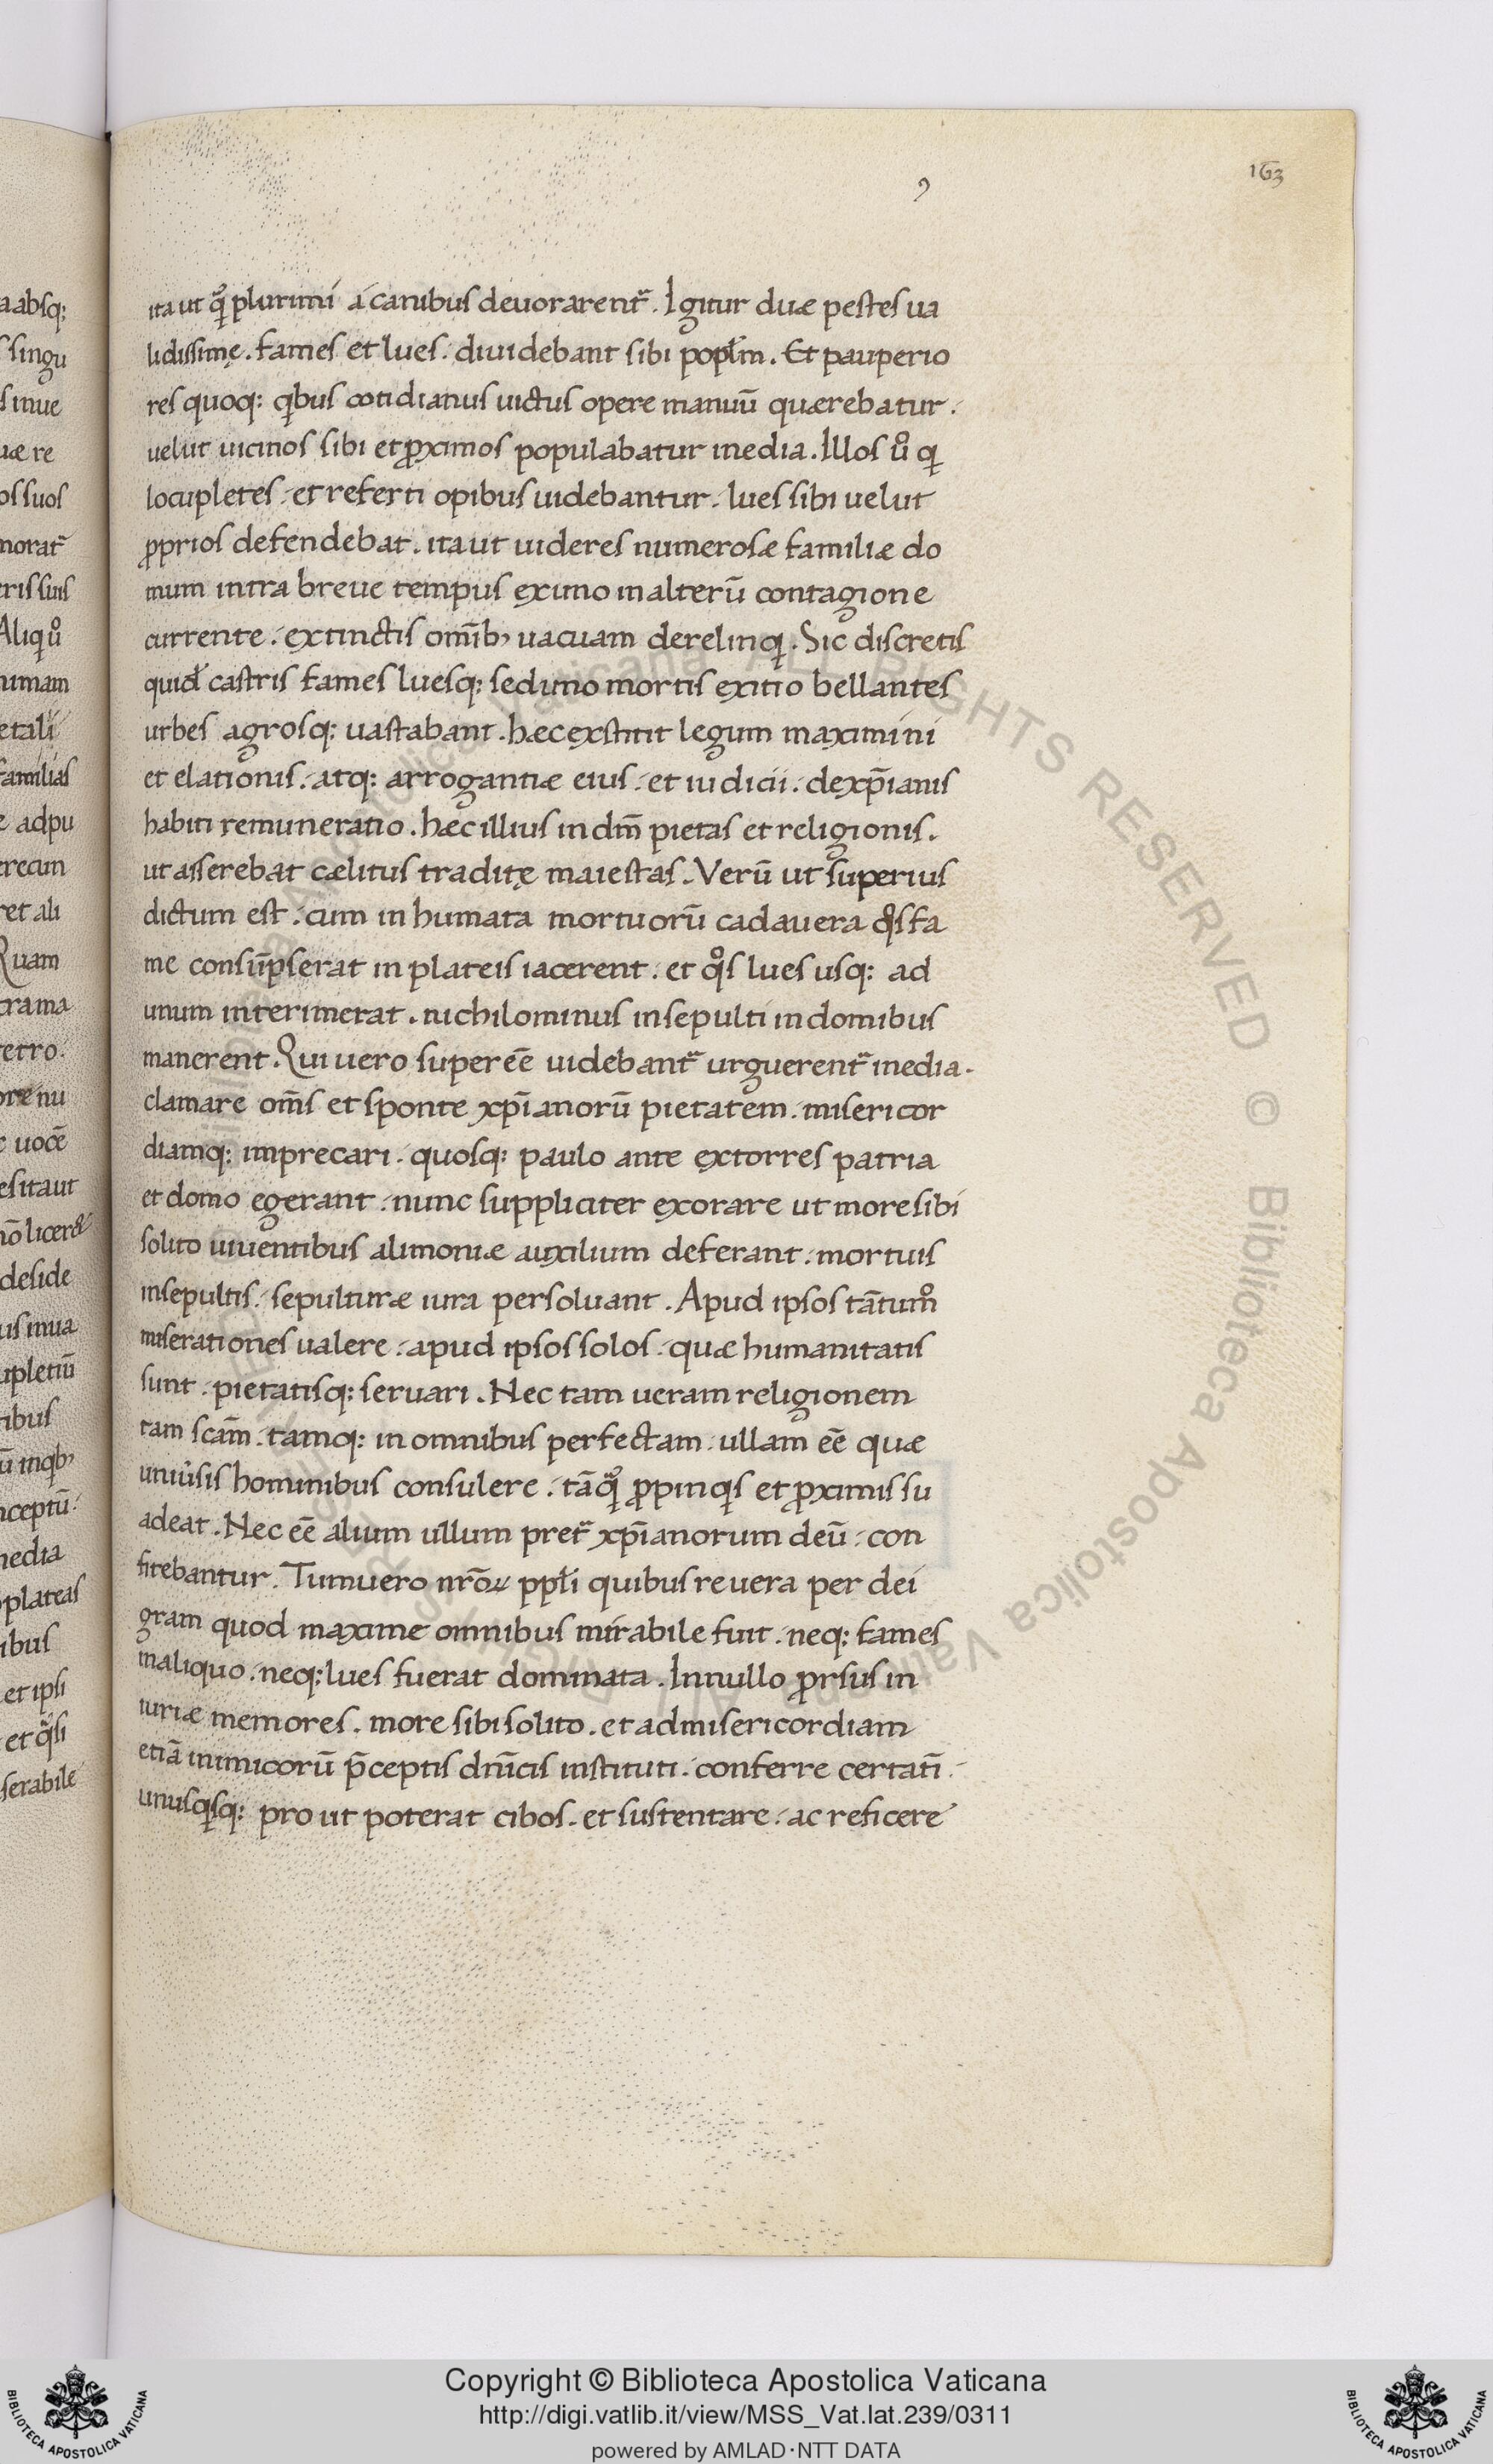 9
163
ita ut qͦ plurimi a canibus deuorarent᷑. Igitur duæ pestes ua
lidissimę. fames et lues. diuidebant sibi popl̄m. Et pauperio
res quoq: qibus cotidianus uictus opere manuū quærebatur.
uelut uicinos sibi et ꝓximos populabatur inedia. Illos uͦ qi
locupletes. et referti opibus uidebantur. lues sibi uelut
ꝓprios defendebat. ita ut uideres numerosæ familiæ do
mum intra breue tempus ex imo in alterū contagione
currente. extinctis omīb; uacuam derelinqi. Sic discretis
quid̄ castris fames luesq: sed uno mortis exitio bellantes
urbes agrosq: uastabant. hæc exstitit legum maximini
et elationis. atq: arrogantiæ eius. et iudicii. de xp̄ianis
habiti remuneratio. hæc illius in dm̄ pietas et religionis.
ut asserebat cælitus traditę maiestas. Verū ut superius
dictum est. cum inhumata mortuorū cadauera qͦs fa
me consūpserat in plateis iacerent. et qͦs lues usq: ad
unum interimerat. nichilominus insepulti in domibus
manerent. Qui uero super eē uidebant᷑ urguerent᷑ inedia.
clamare om̄s et sponte xp̄ianorū pietatem. misericor
diamq: imprecari. quosq: paulo ante extorres patria
et domo egerant. nunc suppliciter exorare ut more sibi
solito uiuentibus alimoniæ auxilium deferant. mortuis
insepultis. sepulturæ iura persoluant. Apud ipsos tātumͦ
miserationes ualere. apud ipsos solos. quæ humanitatis
sunt. pietatisq: seruari. Nec tam ueram religionem
tam scām. tamq: in omnibus perfectam. ullam eē quæ
uniûsis hominibus consulere. tāqͣ ꝓpinqis et ꝓximis su
adeat. Nec eē alium ullum pret᷑ xp̄ianorum deū. con
fitebantur. Tum uero nrōꝝ ppl̄i quibus re uera per dei
gram quod maxime omnibus mirabile fuit. neq: fames
in aliquo. neq: lues fuerat dominata. In nullo ꝓrsus in
iuriæ memores. more sibi solito. et ad misericordiam
etiā inimicorū p̄ceptis dnīcis instituti. conferre certatī.
unusqisq: pro ut poterat cibos. et sustentare. ac reficere
Copyright © Biblioteca Apostolica Vaticana
http://digi.vatlib.it/view/MSS_Vat.lat.239/0311
powered by AMLAD·NTT DATA